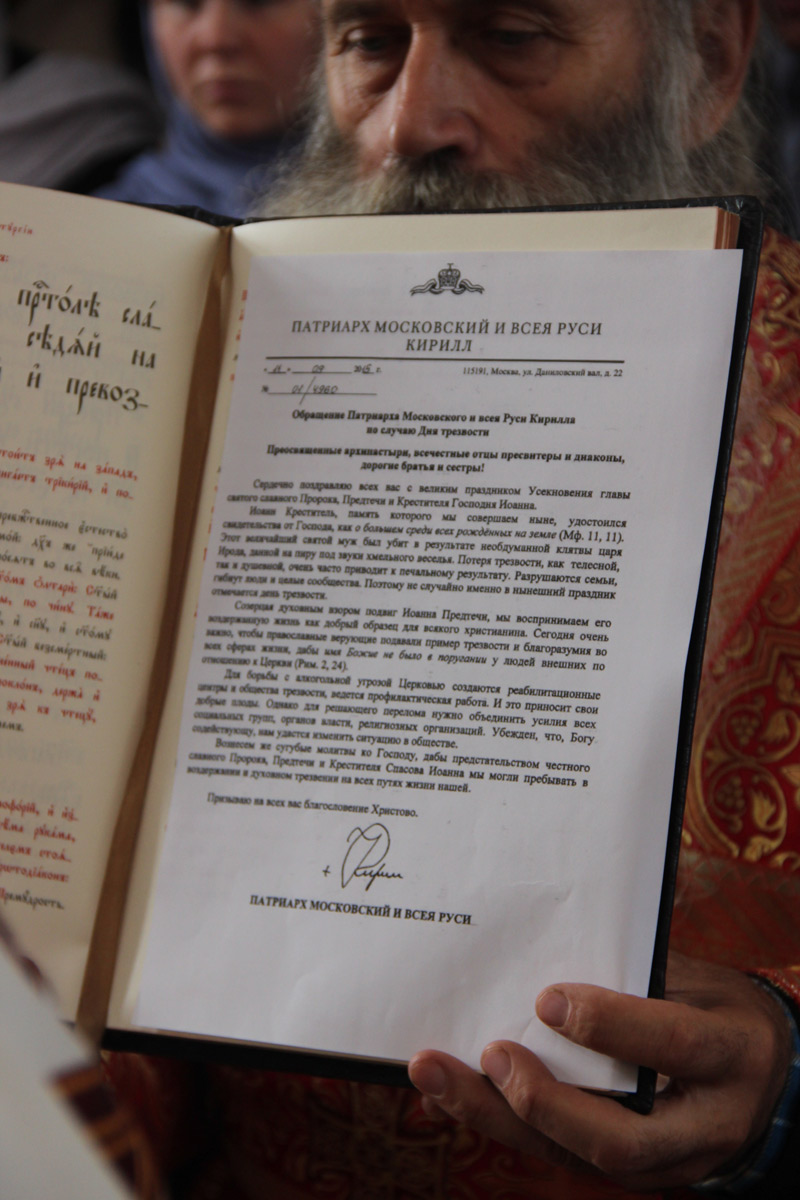 прⷭ҇то́лѣ сла_
сѣдѧ́й на
и҆ превоз_
ПАТРИАРХ МОСКОВСКИЙ И ВСЕЯ РУСИ
КИРИЛЛ
« 11 » 09 2015 г.
115191, Москва, ул. Даниловский вал, д. 22
№ 01/4960
Обращение Патриарха Московского и всея Руси Кирилла
по случаю Дня трезвости
Преосвященные архипастыри, всечестные отцы пресвитеры и диаконы,
дорогие братья и сестры!
Сердечно поздравляю всех вас с великим праздником Усекновения главы
святого славного Пророка, Предтечи и Крестителя Господня Иоанна.
Иоанн Креститель, память которого мы совершаем ныне, удостоился
свидетельства от Господа, как о большем среди всех рождённых на земле (Мф. 11, 11).
Этот величайший святой муж был убит в результате необдуманной клятвы царя
Ирода, данной на пиру под звуки хмельного веселья. Потеря трезвости, как телесной,
так и душевной, очень часто приводит к печальному результату. Разрушаются семьи,
гибнут люди и целые сообщества. Поэтому не случайно именно в нынешний праздник
отмечается день трезвости.
Созерцая духовным взором подвиг Иоанна Предтечи, мы воспринимаем его
воздержанную жизнь как добрый образец для всякого христианина. Сегодня очень
важно, чтобы православные верующие подавали пример трезвости и благоразумия во
всех сферах жизни, дабы имя Божие не было в поругании у людей внешних по
отношению к Церкви (Рим. 2, 24).
Для борьбы с алкогольной угрозой Церковью создаются реабилитационные
центры и общества трезвости, ведется профилактическая работа. И это приносит свои
добрые плоды. Однако для решающего перелома нужно объединить усилия всех
социальных групп, органов власти, религиозных организаций. Убежден, что, Богу
содействующу, нам удастся изменить ситуацию в обществе.
Вознесем же сугубые молитвы ко Господу, дабы предстательством честного
славного Пророка, Предтечи и Крестителя Спасова Иоанна мы могли пребывать в
воздержании и духовном трезвении на всех путях жизни нашей.
Призываю на всех вас благословение Христово.
+ Кирилл
ПАТРИАРХ МОСКОВСКИЙ И ВСЕЯ РУСИ